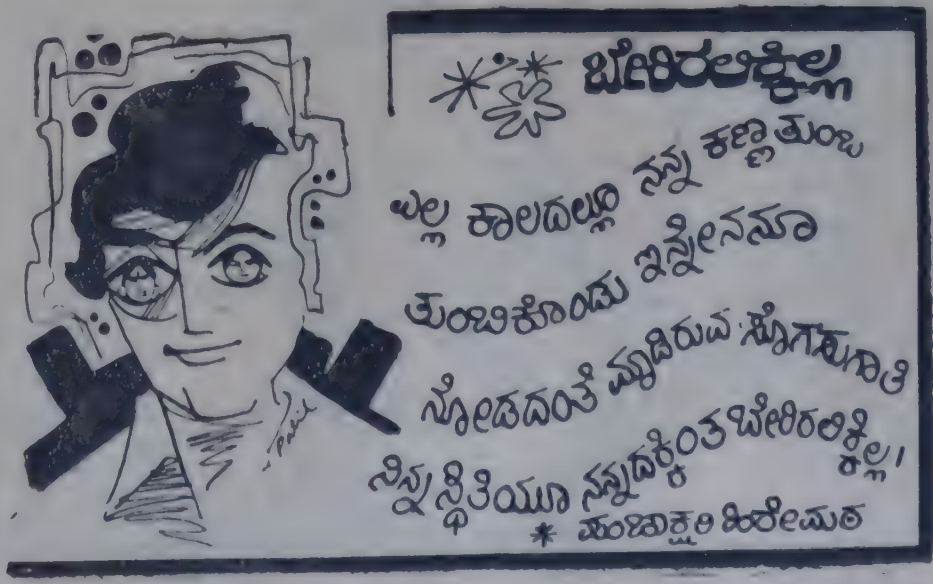 ಬೇರಿರಲಿಕ್ಕಿಲ್ಲ
ಎಲ್ಲ ಕಾಲದಲ್ಲೂ ನನ್ನ ಕಣ್ಣ ತುಂಬ
ತುಂಬಿಕೊಂಡು ಇನ್ನೇನನೂ
ನೋಡದಂತೆ ಮ್ಮಾಡಿರುವ ಸೊಗಸುಗಾತಿ
ನಿನ್ನ ಸ್ಥಿತಿಯೂ ನನ್ನದಕ್ಕಿಂತ ಬೇರಿರಲಿಕ್ಕಿಲ್ಲ।
* ಪಂಚಾಕ್ಷರಿ ಹಿರೇಮಠ